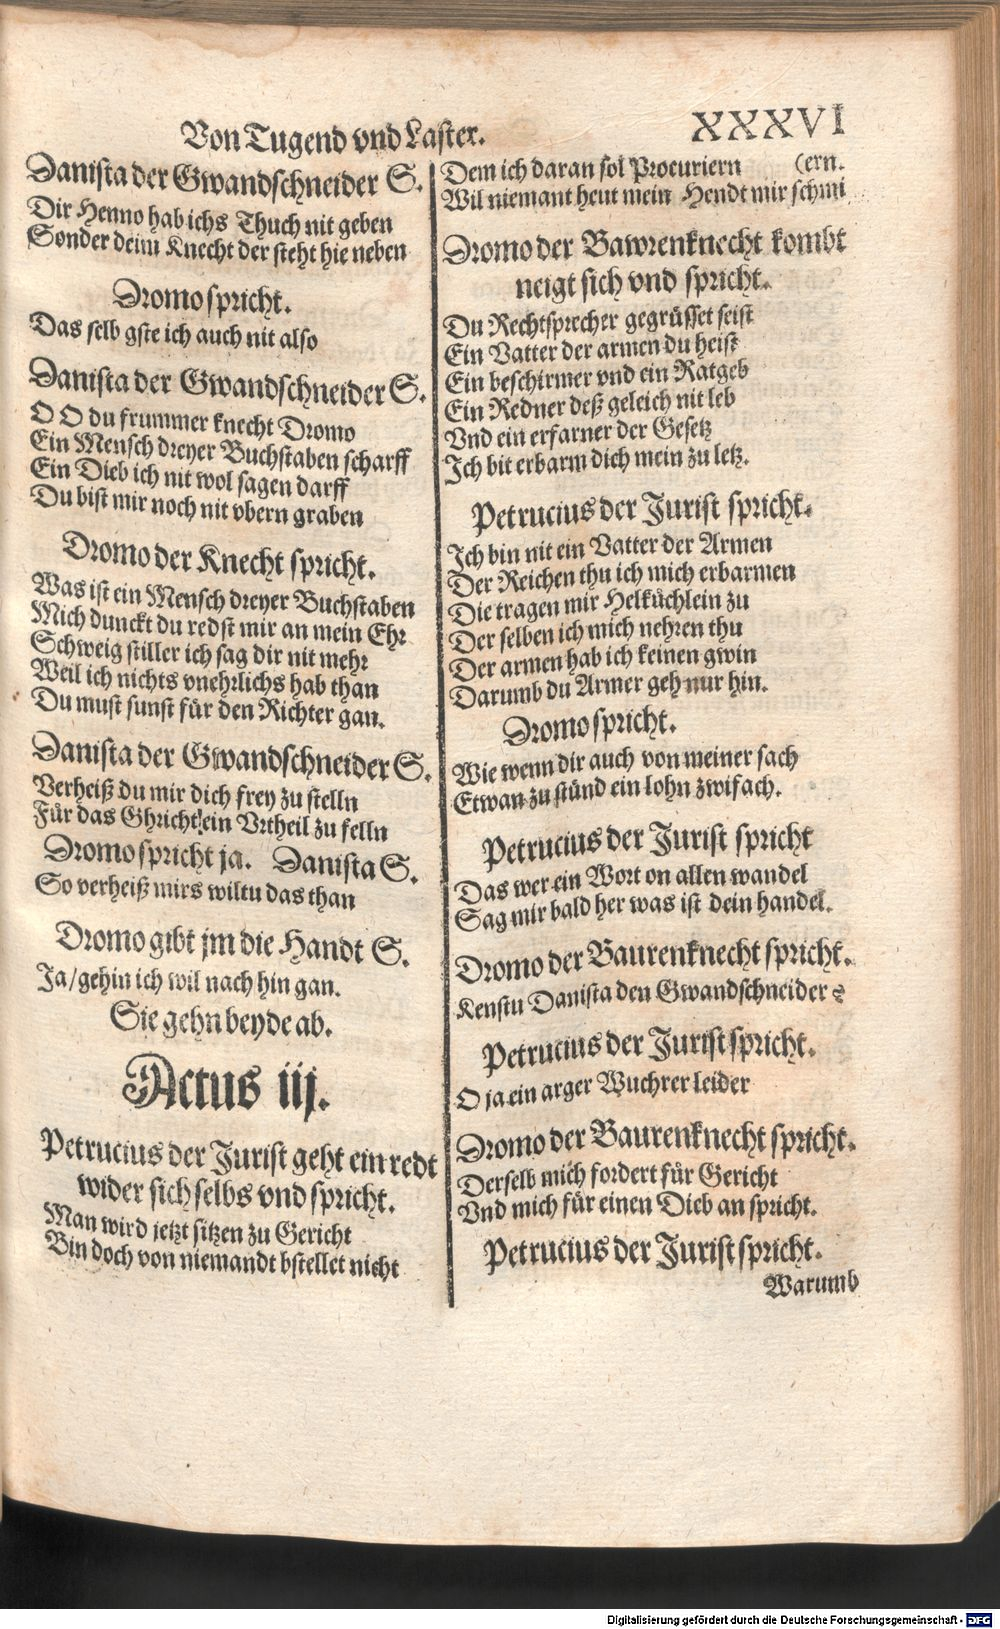 Von Tugend vnd Laster.
XXXVI
Danista der Gwandschneider S.
Dir Henno hab ichs Thuch nit geben
Sonder deim Knecht der steht hie neben
Dromo spricht.
Das selb gste ich auch nit also
Danista der Gwandschneider S.
O O du frummer knecht Dromo
Ein Mensch dreyer Buchstaben scharff
Ein Dieb ich nit wol sagen darff
Du bist mir noch nit vbern graben
Dromo der Knecht spricht.
Was ist ein Mensch dreyer Buchstaben
Mich dunckt du redst mir an mein Ehr
Schweig stiller ich sag dir nit mehr
Weil ich nichts vnehrlichs hab than
Du must sunst für den Richter gan.
Danista der Gwandschneider S.
Verheiß du mir dich frey zu stelln
Für das Ghricht ein Vrtheil zu felln
Dromo spricht ja. Danista S.
So verheiß mirs wiltu das than
Dromo gibt jm die Handt S.
Ja/gehin ich wil nach hin gan.
Sie gehn beyde ab.
Actus iij.
Petrucius der Jurist geht ein redt
wider sich selbs vnd spricht.
Man wird jetzt sitzen zu Gericht
Bin doch von niemandt bstellet nicht
Dem ich daran sol Procuriern (ern.
Wil niemant heut mein Hendt mir schmi
Dromo der Bawrenknecht kombt
neigt sich vnd spricht.
Du Rechtsprecher gegrüsset seist
Ein Vatter der armen du heist
Ein beschirmer vnd ein Ratgeb
Ein Redner deß geleich nit leb
Vnd ein erfarner der Gesetz
Ich bit erbarm dich mein zu letz.
Petrucius der Jurist spricht.
Ich bin nit ein Vatter der Armen
Der Reichen thu ich mich erbarmen
Die tragen mir Helküchlein zu
Der selben ich mich nehren thu
Der armen hab ich keinen gwin
Darumb du Armer geh nur hin.
Dromo spricht.
Wie wenn dir auch von meiner sach
Etwan zu stünd ein lohn zwifach.
Petrucius der Jurist spricht
Das wer ein Wort on allen wandel
Sag mir bald her was ist dein handel.
Dromo der Baurenknecht spricht.
Kenstu Danista den Gwandschneider ?
Petrucius der Jurist spricht.
O ja ein arger Wuchrer leider
Dromo der Baurenknecht spricht.
Derselb mich fordert für Gericht
Vnd mich für einen Dieb an spricht.
Petrucius der Jurist spricht.
Warumb
Digitalisierung gefördert durch die Deutsche Forschungsgemeinschaft - DFG